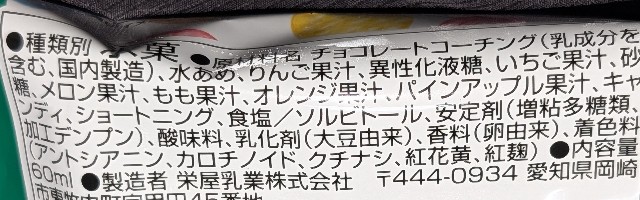 ●種類別 氷菓 ●原材料名 チョコレートコーチング(乳成分を
含む、国内製造)、水あめ、りんご果汁、異性化液糖、いちご果汁、砂
糖、メロン果汁、もも果汁、オレンジ果汁、パインアップル果汁、キャ
ンディ、ショートニング、食塩/ソルビトール、安定剤(増粘多糖類、
加工デンプン)、酸味料、乳化剤(大豆由来)、香料(卵由来)、着色料
(アントシアニン、カロチノイド、クチナシ、紅花黄、紅麹) ●内容量
60ml ●製造者 栄屋乳業株式会社 〒444-0934 愛知県岡崎
市東牧内町字甲田45番地